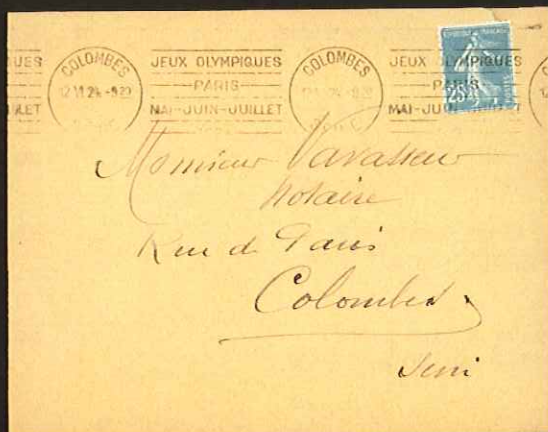 UES
ILLET
COLOMBES
12 VI 24 -9 20
JEUX OLYMPIQUES
PARIS
MAI-JUIN-JUILLET
COLOMBES
24 -9 20
JEUX OLYMPIQUES
PARIS
MAI-JUIN-JUILLET
25c
Monsieur Vavasseur
Notaire
Rue de Paris
Colombes
Seine